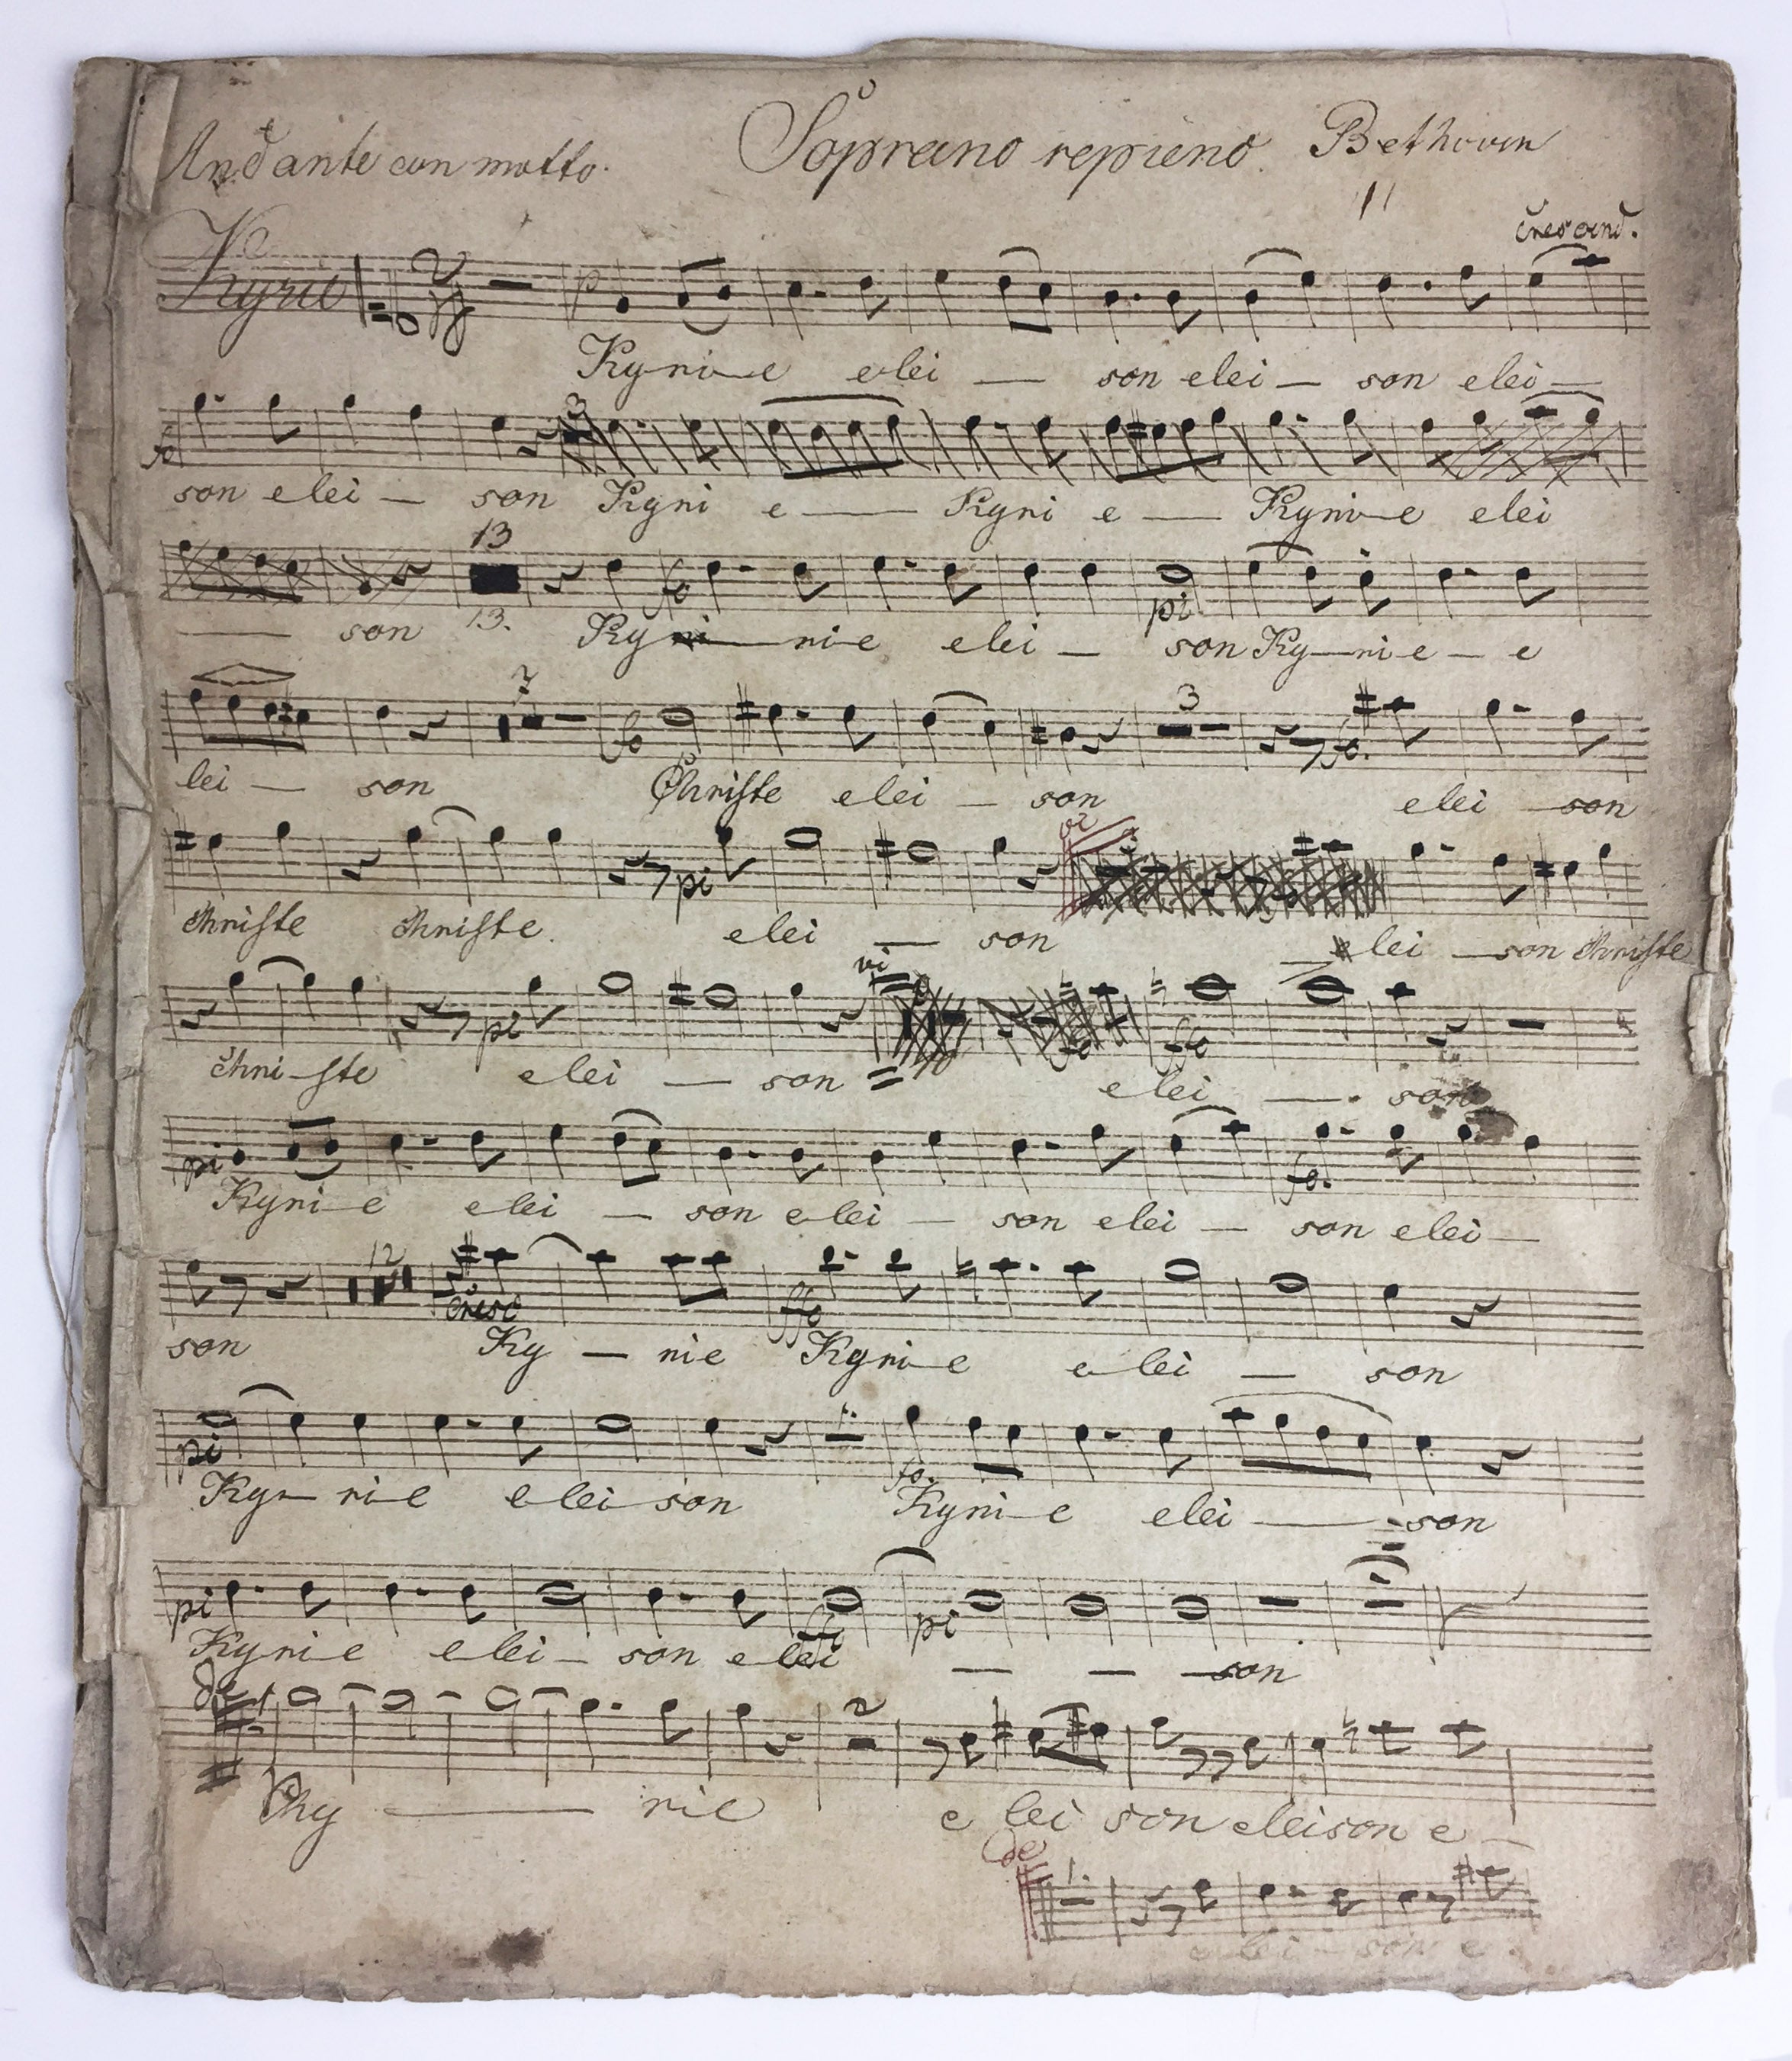 Andante con motto. Soprano repieno. Bethoven
crescend.
Kyrie p
Kyri-e elei — son elei — son elei —
fo
son elei — son Kyri e — Kyri e — Kyri-e elei
13
fo pi
— son 13. Ky — ri-e elei — son Ky-ri-e — e
2 fo 3 fo.
lei — son Christe elei — son elei son
pi
Christe Christe. elei — son elei — son Christe
vi
pi ffo
Chri-ste elei — son elei — son
pi fo.
Kyri-e elei — son elei — son elei — son elei —
12
cresc ffo
son Ky — rie Kyri-e elei — son
pi fo.
Ky- ri-e elei son Kyri-e elei — son
pi pi
Kyri-e elei — son elei — — son
de 2
Khy — rie e lei son eleison e —
de
1.
e lei - son e.